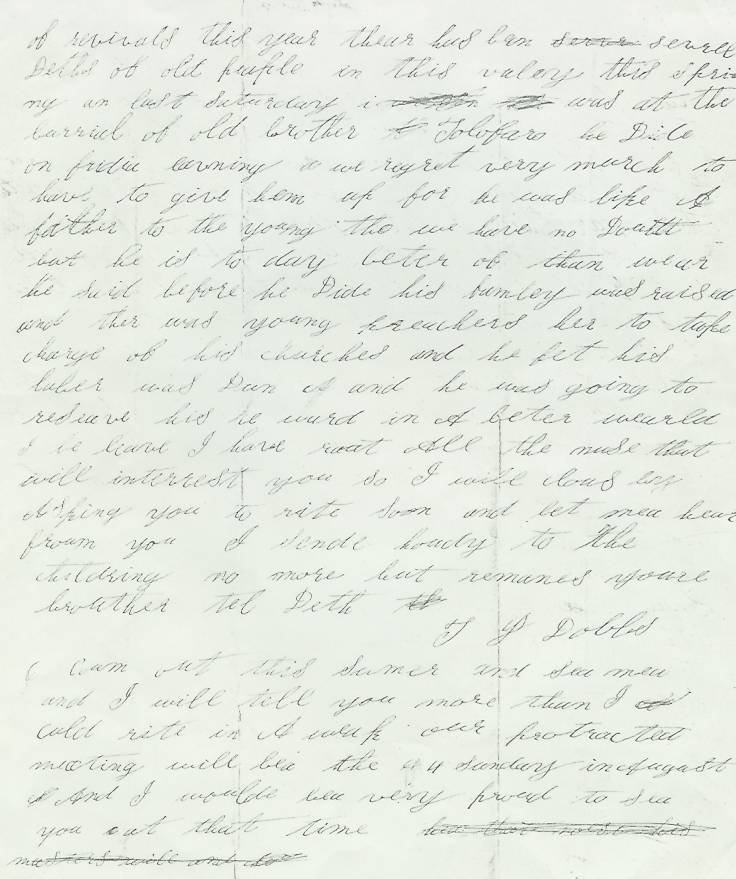 of revivals this year thear has ben sevrel
Deths of old peple in this valey this spri
ng an last saturday i was at the
burrial of old brother Tolofaro he Dide
on fridia evening a we regret very murch to
have to give hem up for he was like A
father to the young tho we have no Doutt
but he is to day beter of than wear
he said before he Dide his famley was raised
and ther was young preachers her to take
charge of his churches and he felt his
laber was Dun A and he was going to
reseave his re ward in A beter wearld
I be leave I have rout All the nuse that
will interrest you so I will clous by
Asking you to rite soon and let mea hear
froum you I sende howdy to the
childring no more but remanes youre
brouther tel Deth
T J Dobbs
Coum out this sumer and sea mea
and I will tell you more than I
cold rite in A weak our protracted
meeting will bea the 4 sunday in August
And I woulde bea very proud to sea
you out that time